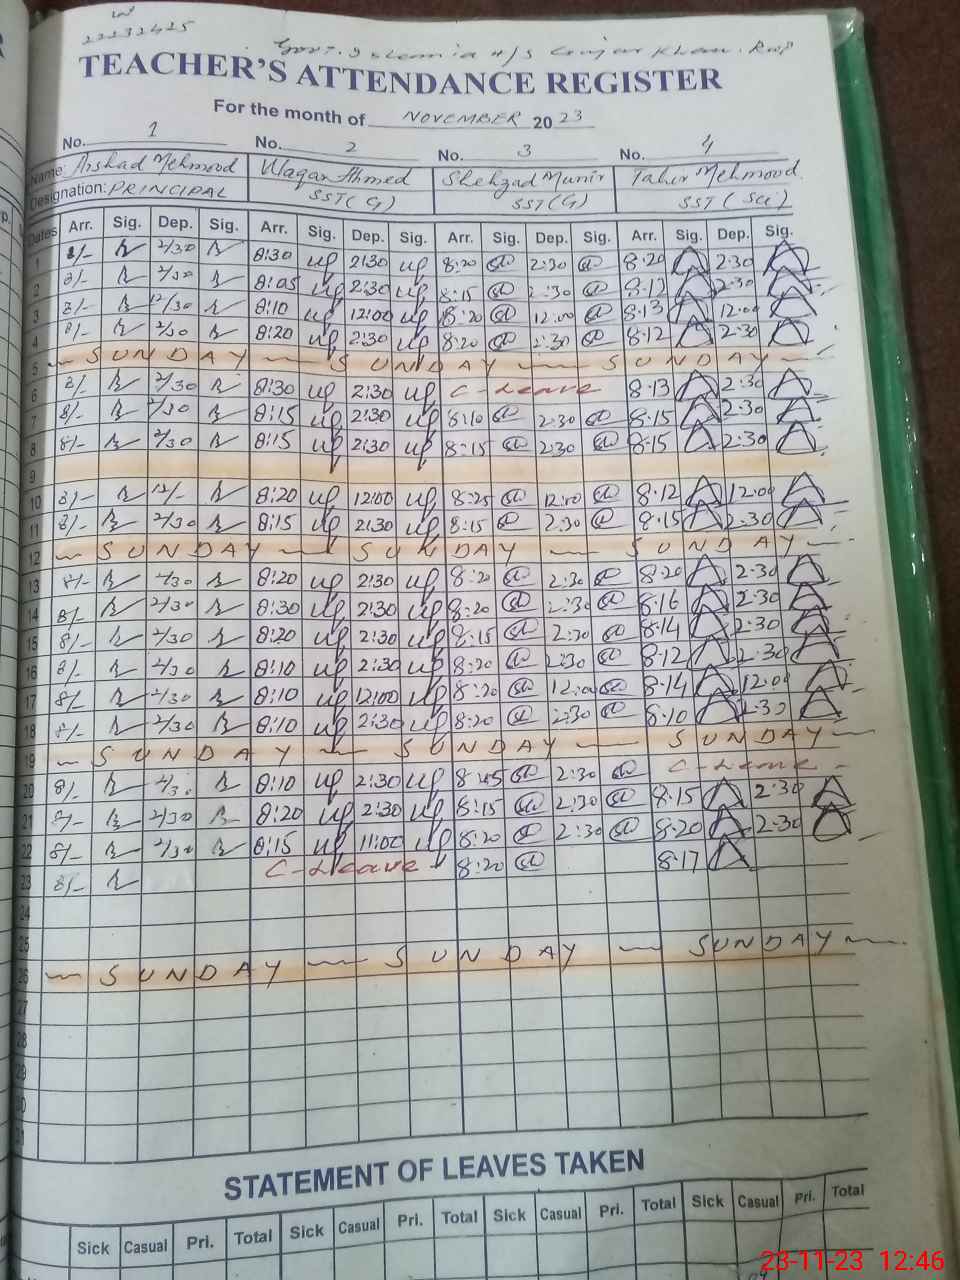 22232425
Govt. Islamia H/S Gujar Khan. Rwp
TEACHER'S ATTENDANCE REGISTER
For the month of NOVEMBER 2023
No. 1 No. 2 No. 3 No. 4
Name: Arshad Mehmood Waqar Ahmed Shehzad Munir Tahir Mehmood
Designation: PRINCIPAL SST(G) SST(G) SST(Sci)
Dates Arr. Sig. Dep. Sig. Arr. Sig. Dep. Sig. Arr. Sig. Dep. Sig. Arr. Sig. Dep. Sig.
1 8/- 2/30 8:30 2:30 8:20 2:30 8:20 2:30
2 8/- 2/30 8:05 2:30 8:15 2:30 8:12 2:30
3 8/- 12/30 8:10 12:00 8:20 12:00 8:13 12:00
4 8/- 2/30 8:20 2:30 8:20 2:30 8:12 2:30
5 SUNDAY SUNDAY SUNDAY
6 8/- 2/30 8:30 2:30 C-Leave 8:13 2:30
7 8/- 2/30 8:15 2:30 8:10 2:30 8:15 2:30
8 8/- 2/30 8:15 2:30 8:15 2:30 8:15 2:30
9
10 8/- 12/- 8:20 12:00 8:25 12:00 8:12 12:00
11 8/- 2/30 8:15 2:30 8:15 2:30 8:15 2:30
12 SUNDAY SUNDAY SUNDAY
13 8/- 2/30 8:20 2:30 8:20 2:30 8:20 2:30
14 8/- 2/30 8:30 2:30 8:20 2:30 8:16 2:30
15 8/- 2/30 8:20 2:30 8:15 2:30 8:14 2:30
16 8/- 2/30 8:10 2:30 8:20 2:30 8:12 2:30
17 8/- 2/30 8:10 12:00 8:20 12:00 8:14 12:00
18 8/- 2/30 8:10 2:30 8:20 2:30 8:10 2:30
19 SUNDAY SUNDAY SUNDAY
20 8/- 2/30 8:10 2:30 8:45 2:30 C-Leave
21 8/- 2/30 8:20 2:30 8:15 2:30 8:15 2:30
22 8/- 2/30 8:15 11:00 8:20 2:30 8:20 2:30
23 8/- C-Leave 8:20 8:17
24
25
26 SUNDAY SUNDAY SUNDAY
27
28
29
30
31
STATEMENT OF LEAVES TAKEN
Sick Casual Pri. Total Sick Casual Pri. Total Sick Casual Pri. Total Sick Casual Pri. Total
23-11-23 12:46